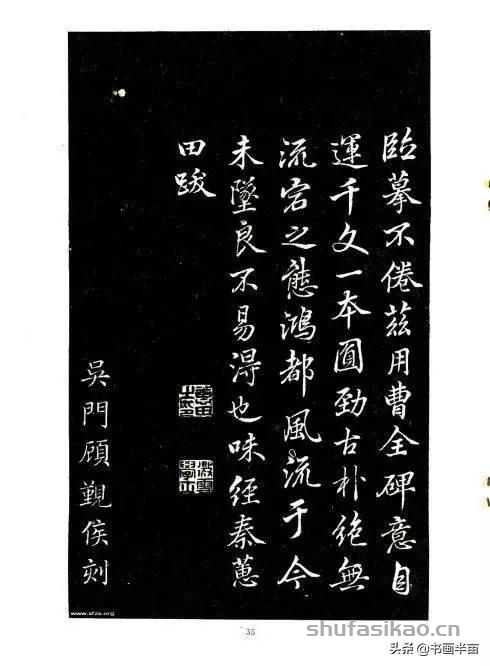 臨摹不倦茲用曹全碑意自
運千文一本圓勁古朴絕無
流宕之態鴻都風流于今
未墜良不易淂也味經秦蕙
田跋
吳門顧覲侯刻
www.sfzx.org
35
shufasikao.cn
头条 @书画半亩